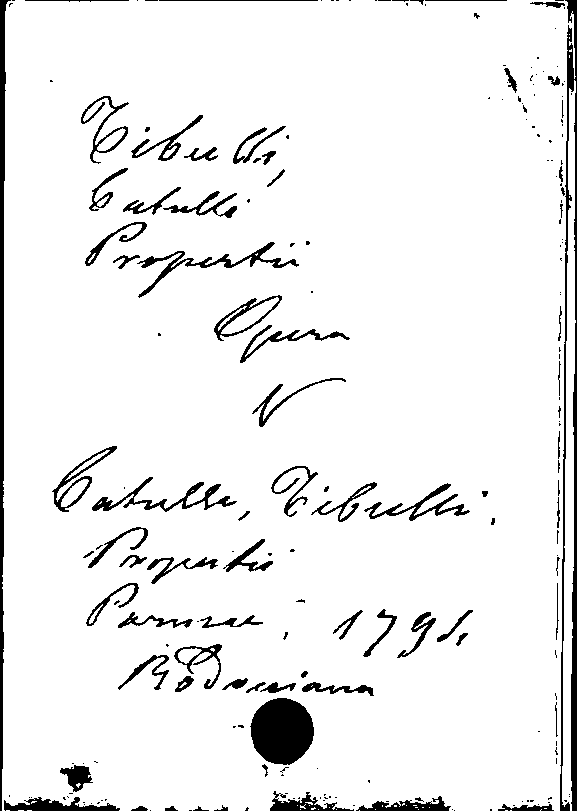 Tibulli,
Catulli
Propertii
Opera
V
Catulli, Tibulli,
Propertii
Parmae, 1794.
Bodoniana